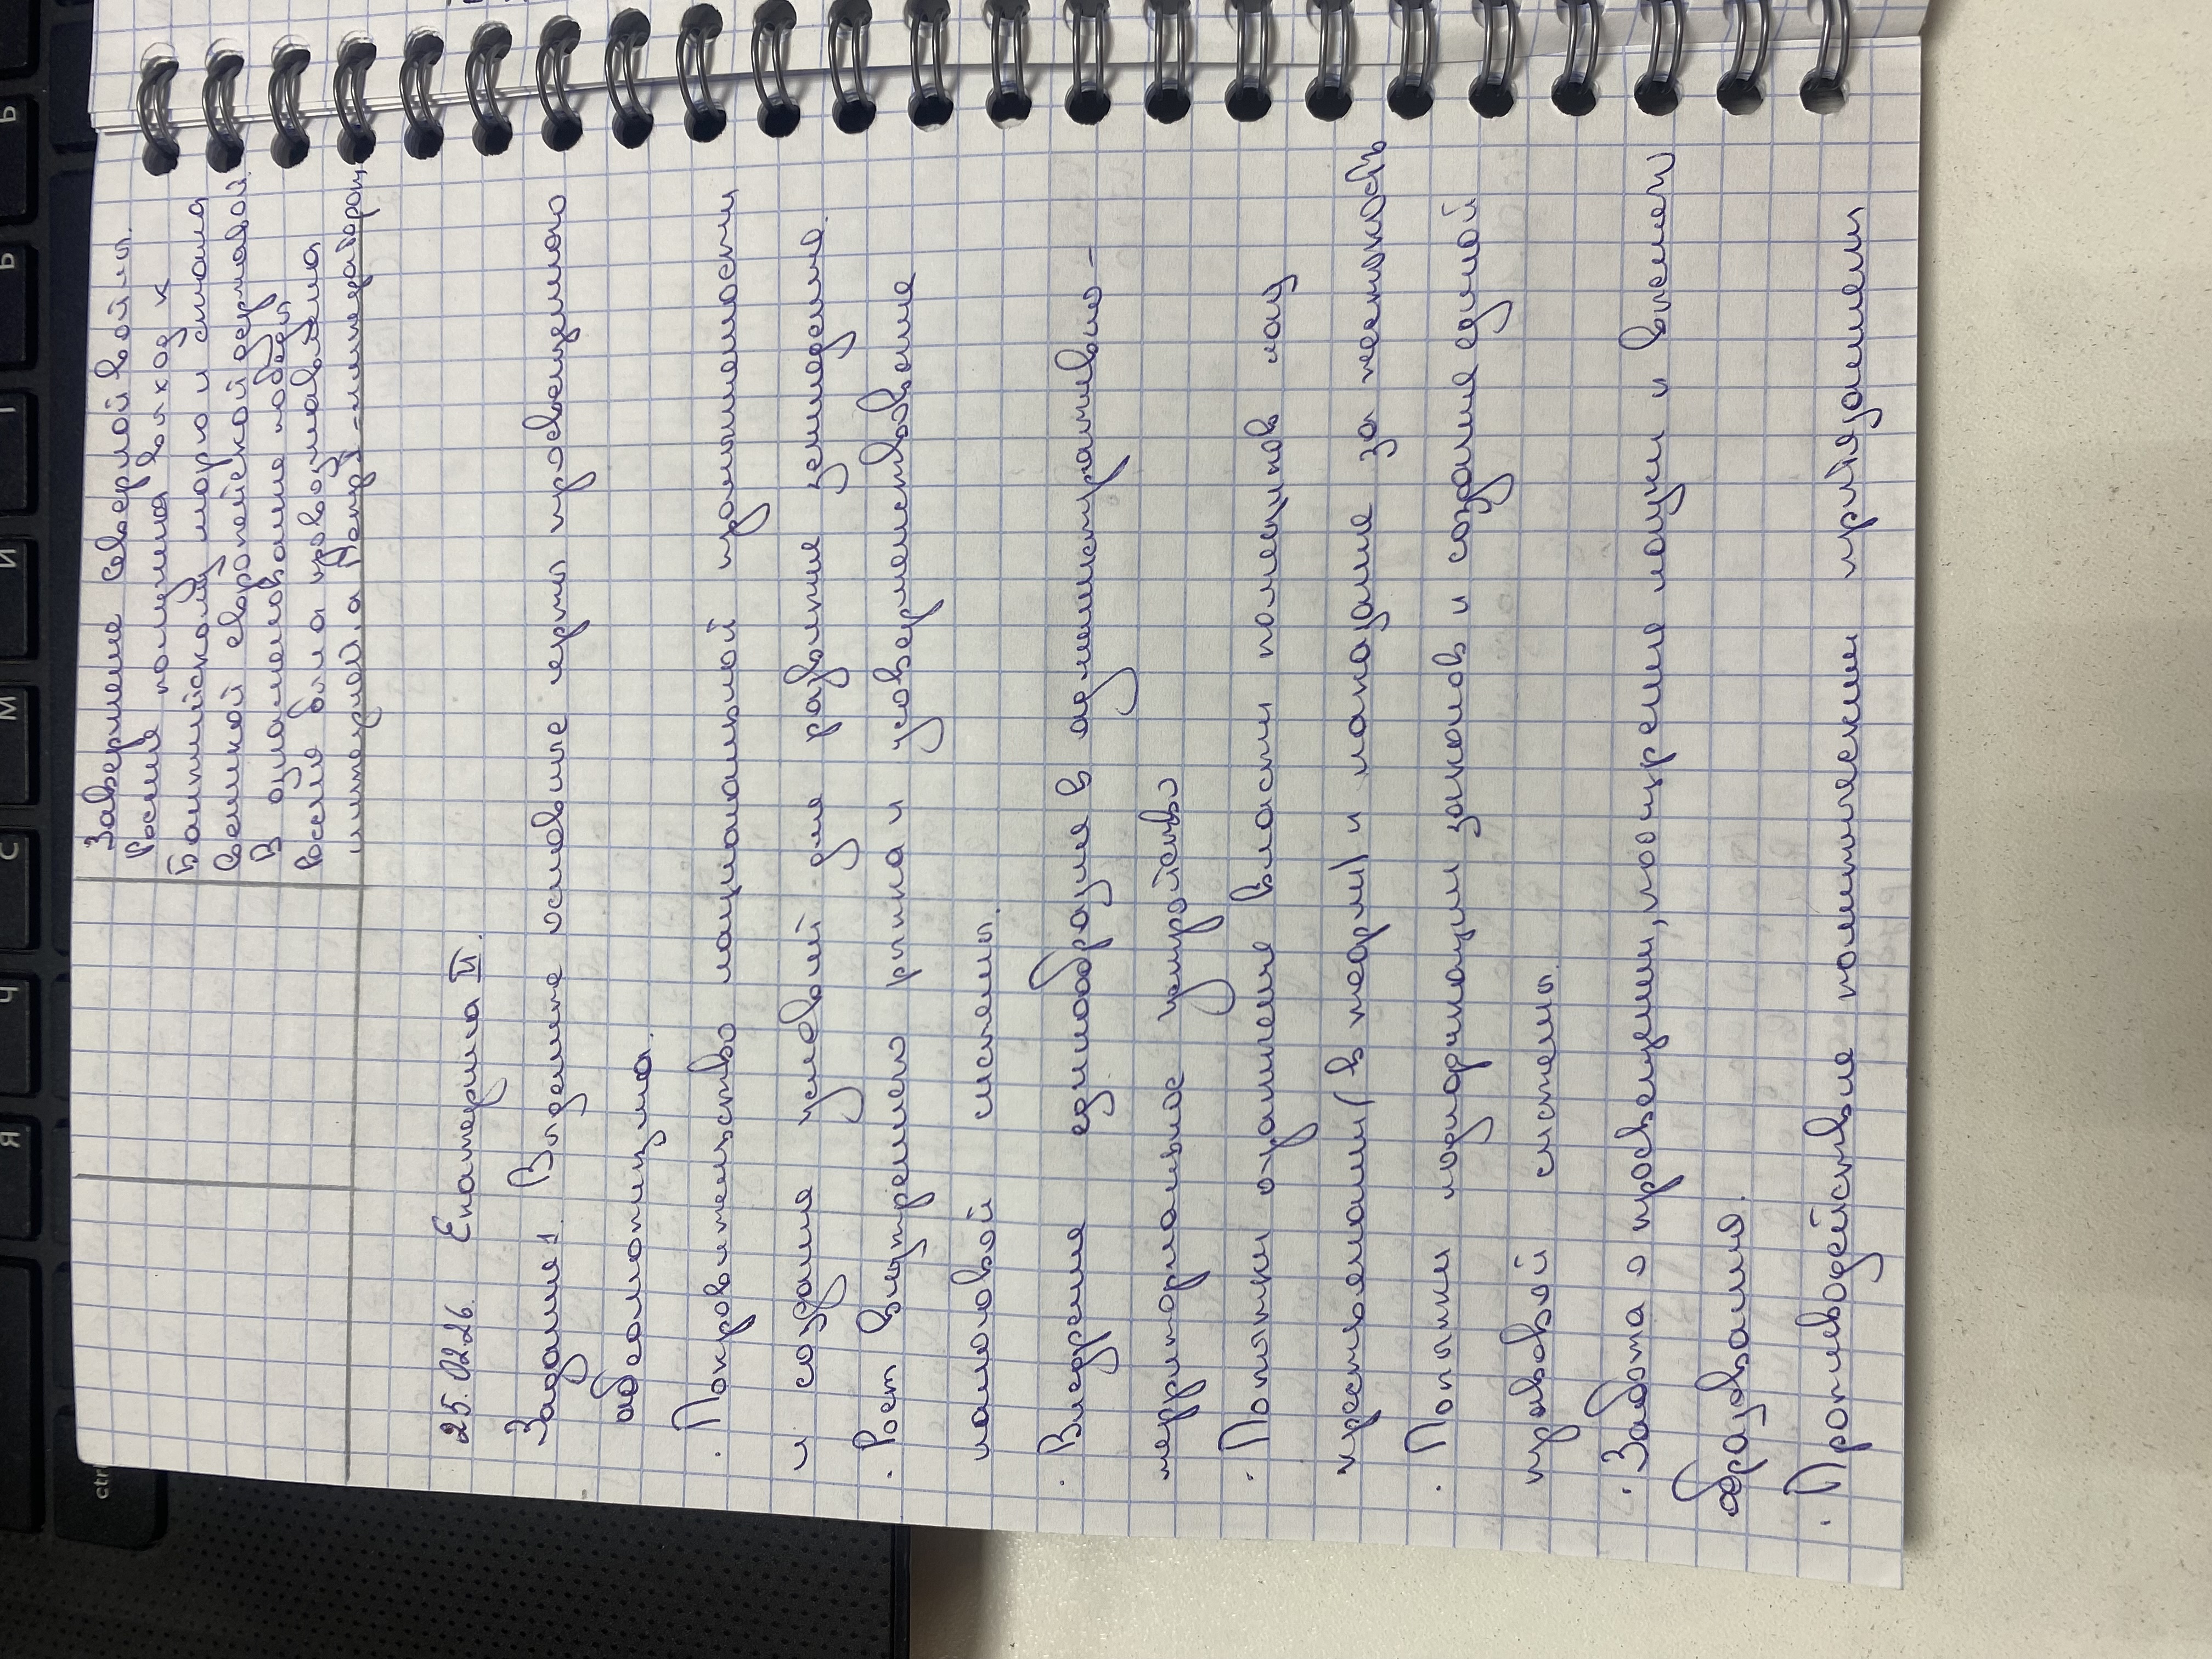 Завершение северной войны.
Россия получила выход к
Балтийскому морю и стала
великой европейской державой.
В ознаменование победы
Россия была провозглашена
империей, а Петр I - императором
25.02.26. Екатерина II.
Задание 1. Выделите основные черты просвещенного
абсолютизма.
· Покровительство национальной промышленности
и создание условий для развития земледелия.
· Рост внутреннего рынка и усовершенствование
налоговой системы.
· Внедрение единообразия в административно-
территориальное устройство
· Попытки ограничение власти помещиков над
крестьянами (в теории) и наказание за жестокость
· Попытки модернизации законов и создание единой
правовой системы.
· Забота о просвещении, поощрение науки и
образования.
· Противодействие политическим притязаниям